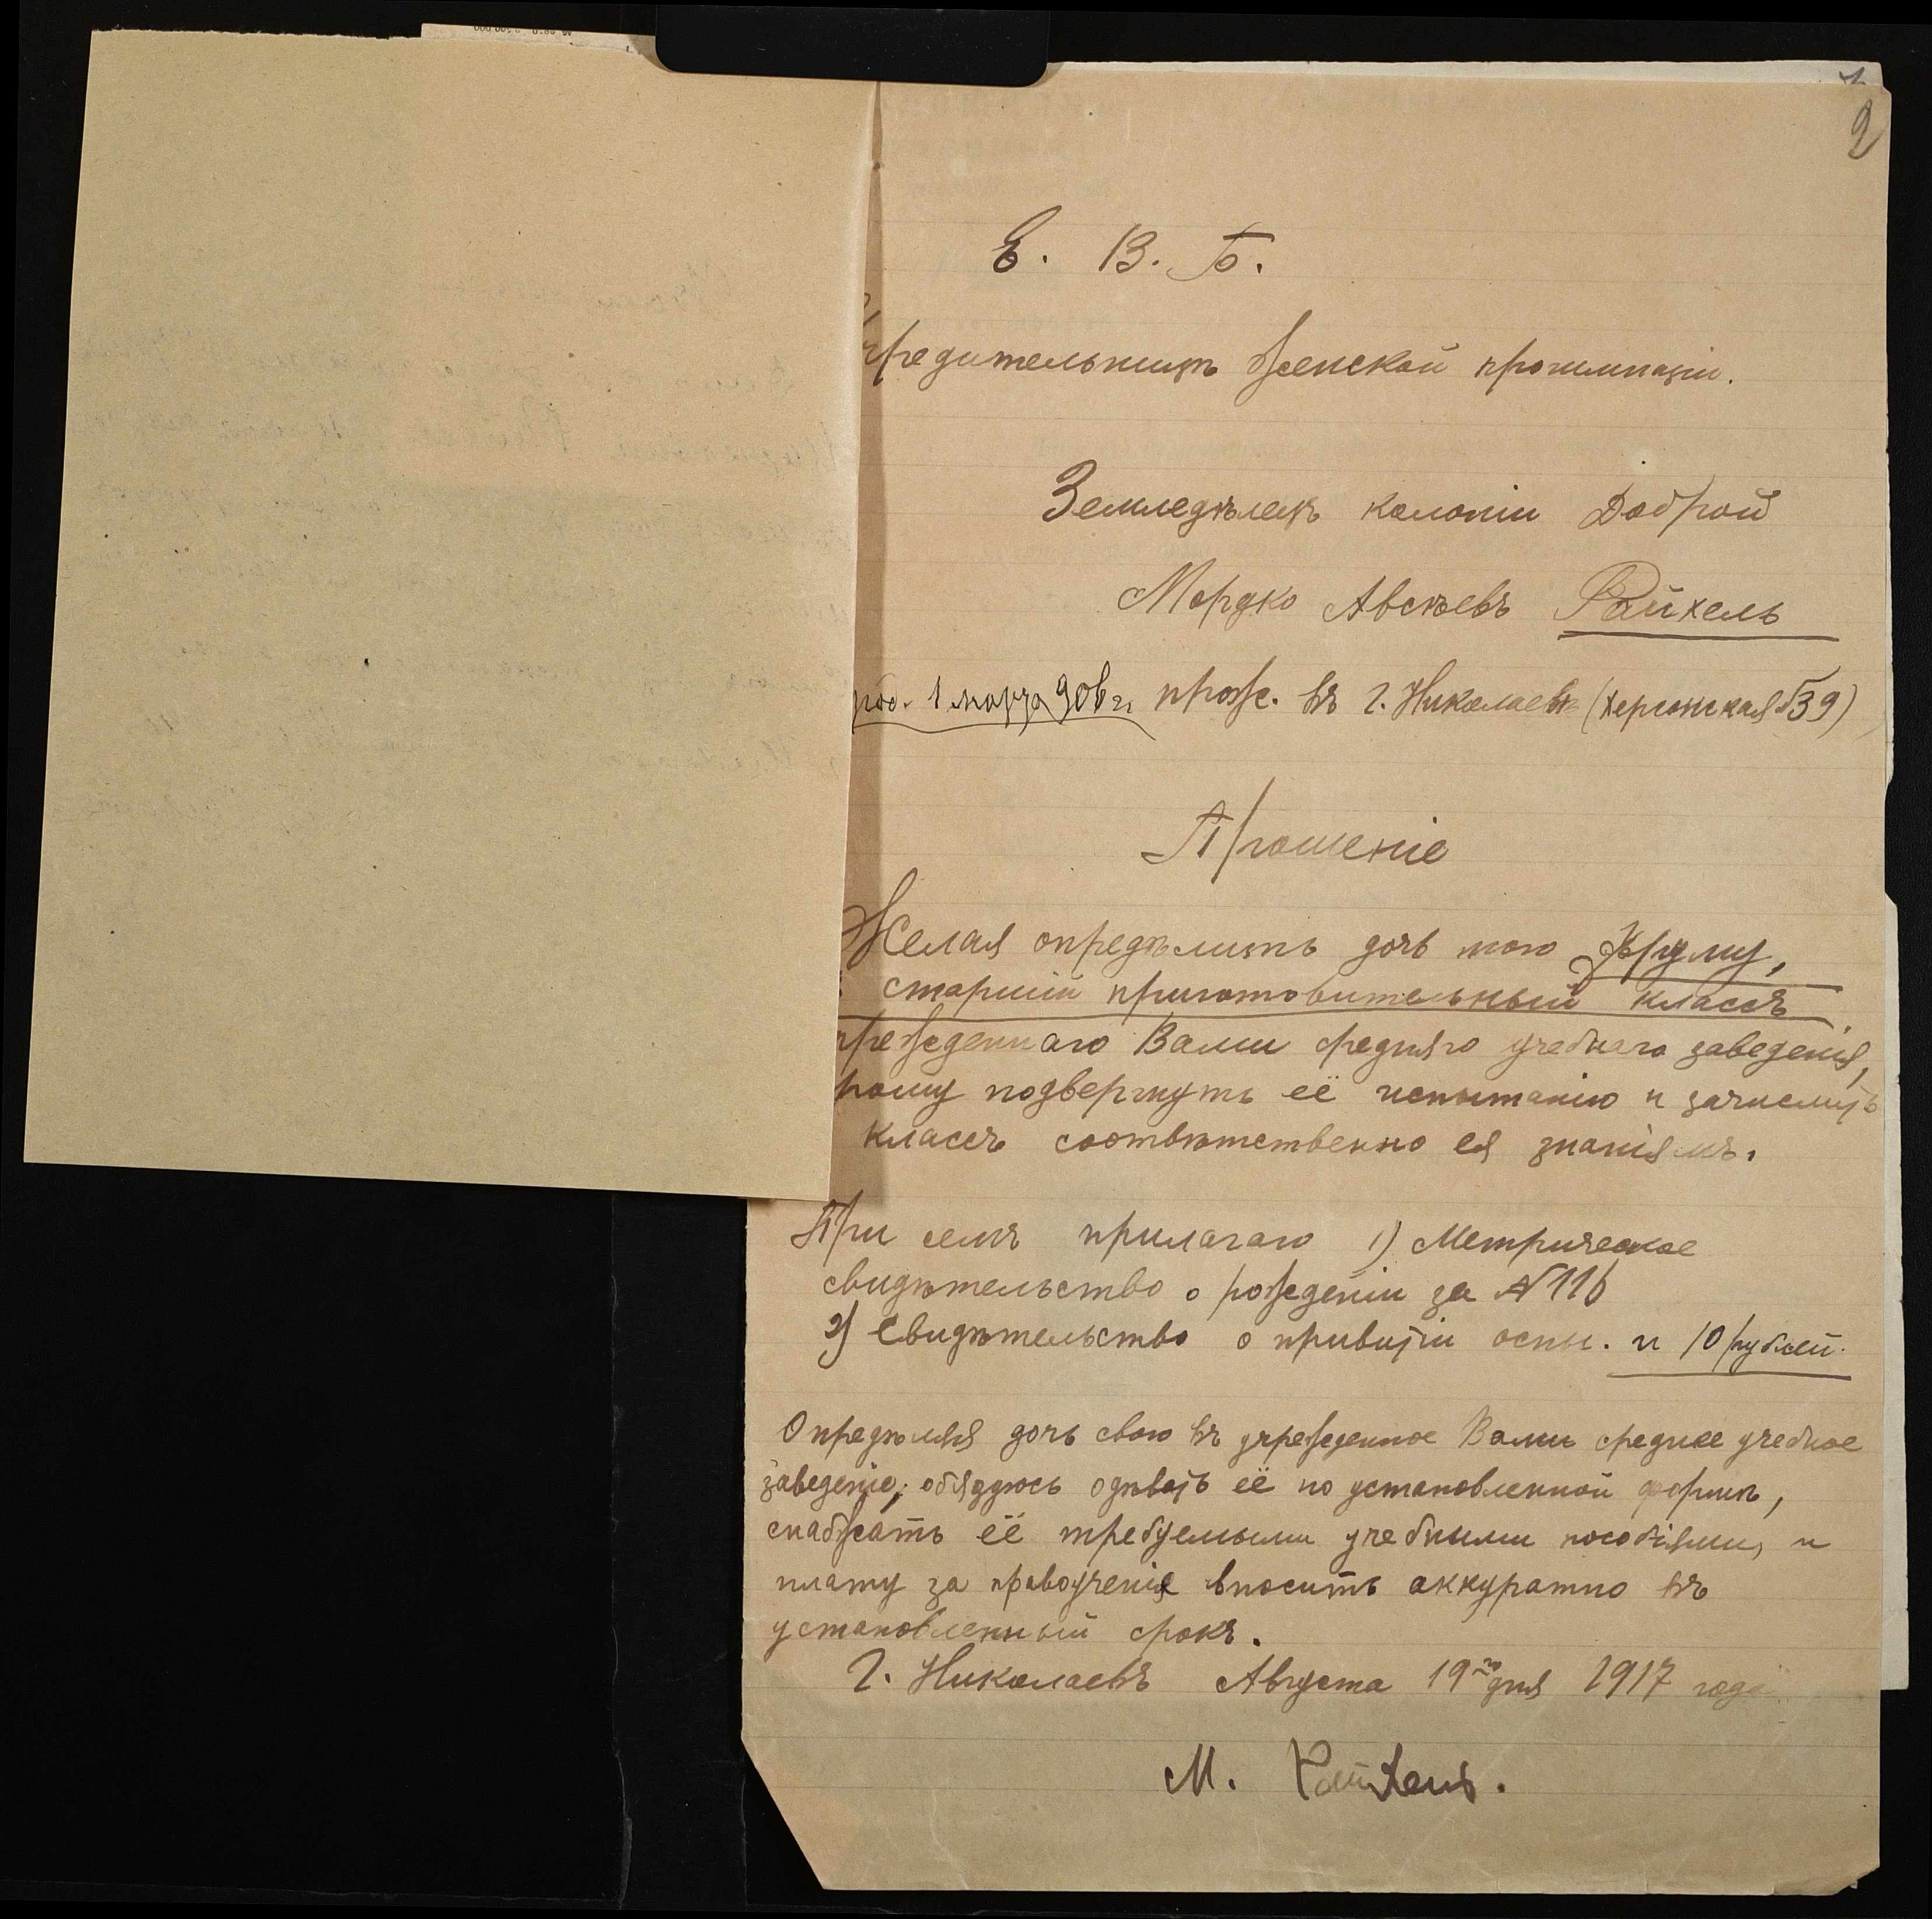 2
Е. В. Б.
Учредительницѣ женской прогимназіи.
Земледѣлецъ колоніи Доброй
Мордко Авсѣевъ Райхель
род. 1 марта 906 г. прож. въ г. Николаевѣ (Херсонская № 39)
Прошеніе
Желая опредѣлить дочь мою Фруму,
старшій приготовительный классъ
учрежденнаго Вами средняго учебнаго заведенія,
прошу подвергнуть её испытанію и зачислить
классъ соотвѣтственно ея знаніямъ.
При семъ прилагаю 1) Метрическое
свидѣтельство о рожденіи за № 116
2) Свидѣтельство о привитіи оспы. и 10 рублей.
Опредѣляя дочь свою въ учрежденное Вами среднее учебное
заведеніе, обязуюсь одѣвать её по установленной формѣ,
снабжать её требуемыми учебными пособіями, и
плату за правоученія вносить аккуратно въ
установленный срокъ.
Г. Николаевъ Августа 19го дня 1917 года
М. Райхель.